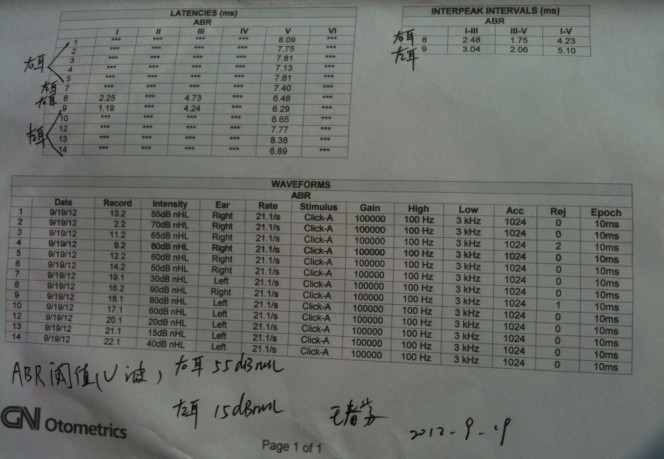 LATENCIES (ms)
ABR
I II III IV V VI
1 *** *** *** *** 8.09 ***
2 *** *** *** *** 7.75 ***
3 *** *** *** *** 7.81 ***
4 *** *** *** *** 7.13 ***
5 *** *** *** *** 7.81 ***
7 *** *** *** *** 7.40 ***
8 2.25 *** 4.73 *** 6.48 ***
9 1.19 *** 4.24 *** 6.29 ***
10 *** *** *** *** 6.65 ***
12 *** *** *** *** 7.77 ***
13 *** *** *** *** 8.38 ***
14 *** *** *** *** 6.89 ***
右耳
左耳
右耳
左耳
INTERPEAK INTERVALS (ms)
ABR
I-III III-V I-V
右耳 8 2.48 1.75 4.23
左耳 9 3.04 2.06 5.10
WAVEFORMS
ABR
Date Record Intensity Ear Rate Stimulus Gain High Low Acc Rej Epoch
1 9/19/12 13.2 55dB nHL Right 21.1/s Click-A 100000 100 Hz 3 kHz 1024 0 10ms
2 9/19/12 2.2 70dB nHL Right 21.1/s Click-A 100000 100 Hz 3 kHz 1024 0 10ms
3 9/19/12 11.2 65dB nHL Right 21.1/s Click-A 100000 100 Hz 3 kHz 1024 0 10ms
4 9/19/12 9.2 80dB nHL Right 21.1/s Click-A 100000 100 Hz 3 kHz 1024 2 10ms
5 9/19/12 12.2 60dB nHL Right 21.1/s Click-A 100000 100 Hz 3 kHz 1024 0 10ms
6 9/19/12 14.2 50dB nHL Right 21.1/s Click-A 100000 100 Hz 3 kHz 1024 0 10ms
7 9/19/12 19.1 30dB nHL Left 21.1/s Click-A 100000 100 Hz 3 kHz 1024 0 10ms
8 9/19/12 16.2 90dB nHL Right 21.1/s Click-A 100000 100 Hz 3 kHz 1024 0 10ms
9 9/19/12 18.1 80dB nHL Left 21.1/s Click-A 100000 100 Hz 3 kHz 1024 1 10ms
10 9/19/12 17.1 60dB nHL Left 21.1/s Click-A 100000 100 Hz 3 kHz 1024 0 10ms
12 9/19/12 20.1 20dB nHL Left 21.1/s Click-A 100000 100 Hz 3 kHz 1024 0 10ms
13 9/19/12 21.1 15dB nHL Left 21.1/s Click-A 100000 100 Hz 3 kHz 1024 0 10ms
14 9/19/12 22.1 40dB nHL Left 21.1/s Click-A 100000 100 Hz 3 kHz 1024 0 10ms
ABR阈值(V波) 右耳 55dBnHL
左耳 15dBnHL 2012-9-19
GN Otometrics
Page 1 of 1